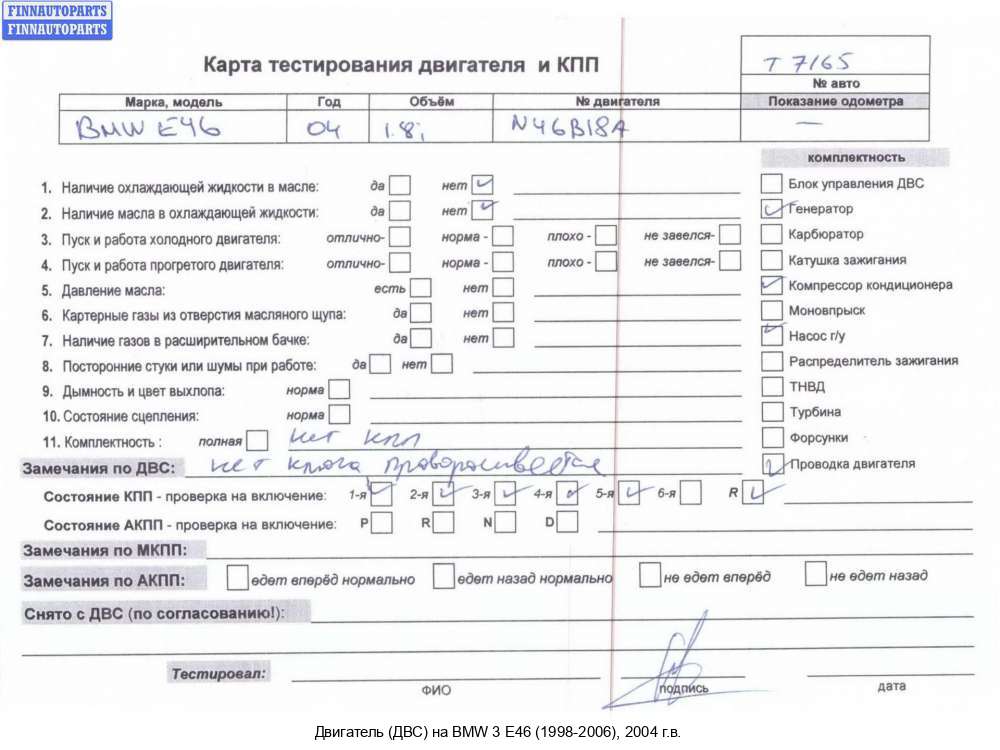 FINNAUTOPARTS
FINNAUTOPARTS
Карта тестирования двигателя и КПП
T 7165
№ авто
Марка, модель Год Объём № двигателя Показание одометра
BMW E46 04 1.8i N46B18A —
комплектность
1. Наличие охлаждающей жидкости в масле: да нет
Блок управления ДВС
2. Наличие масла в охлаждающей жидкости: да нет
Генератор
3. Пуск и работа холодного двигателя: отлично- норма - плохо - не завелся-
Карбюратор
4. Пуск и работа прогретого двигателя: отлично- норма - плохо - не завелся-
Катушка зажигания
5. Давление масла: есть нет
Компрессор кондиционера
6. Картерные газы из отверстия масляного щупа: да нет
Моновпрыск
7. Наличие газов в расширительном бачке: да нет
Насос г/у
8. Посторонние стуки или шумы при работе: да нет
Распределитель зажигания
9. Дымность и цвет выхлопа: норма
ТНВД
10. Состояние сцепления: норма
Турбина
11. Комплектность : полная нет КПП
Форсунки
Замечания по ДВС: нет ключа проворачивается
Проводка двигателя
Состояние КПП - проверка на включение: 1-я 2-я 3-я 4-я 5-я 6-я R
Состояние АКПП - проверка на включение: P R N D
Замечания по МКПП:
Замечания по АКПП: едет вперёд нормально едет назад нормально не едет вперёд не едет назад
Снято с ДВС (по согласованию!):
Тестировал:
ФИО подпись дата
Двигатель (ДВС) на BMW 3 E46 (1998-2006), 2004 г.в.